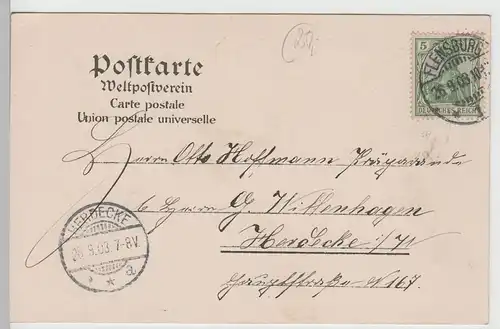 Postkarte
Weltpostverein
Carte postale
Union postale universelle
5
DEUTSCHES REICH
FLENSBURG
Herrn Otto Hoffmann Präparande
Herrn G. Wittenhagen
Herdecke i/W
Hauptstraße N 167.
HERDECKE
26.9.03 7-8V.
* * a